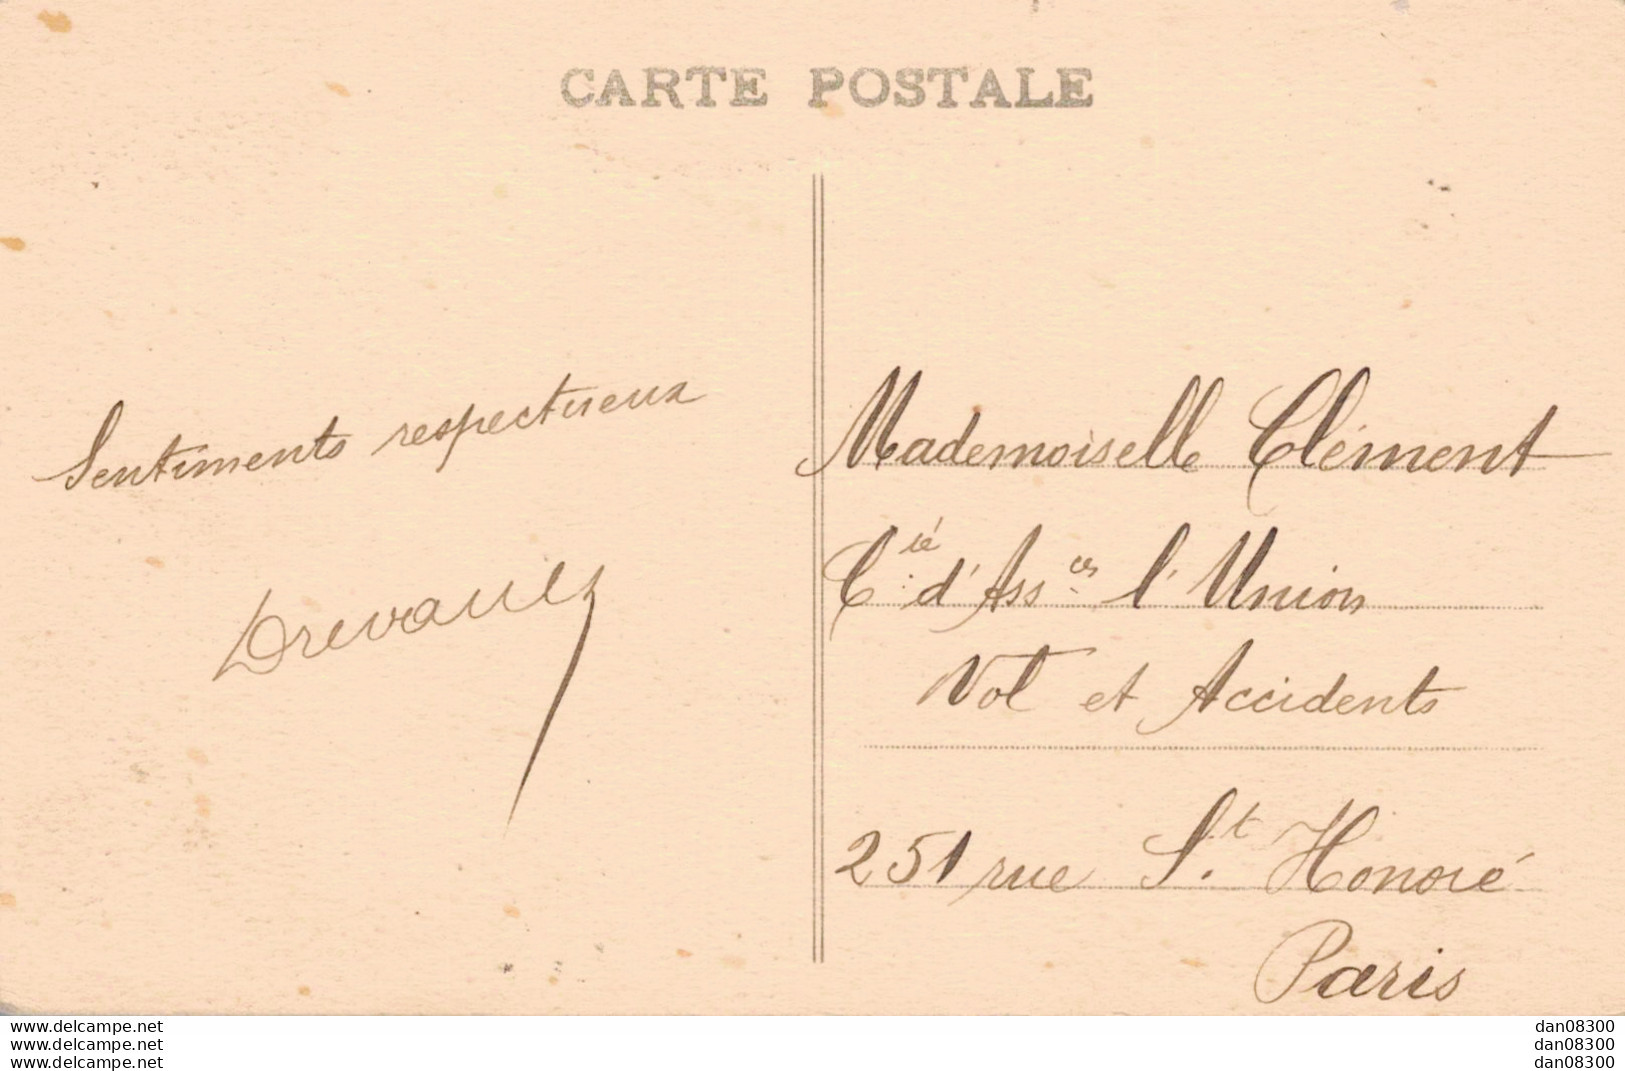 CARTE POSTALE
Sentiments respectueux
Mademoiselle Clément
Cié d'Assces l'Union
Vol et Accidents
251 rue St. Honoré
Paris
www.delcampe.net
www.delcampe.net
www.delcampe.net
dan08300
dan08300
dan08300